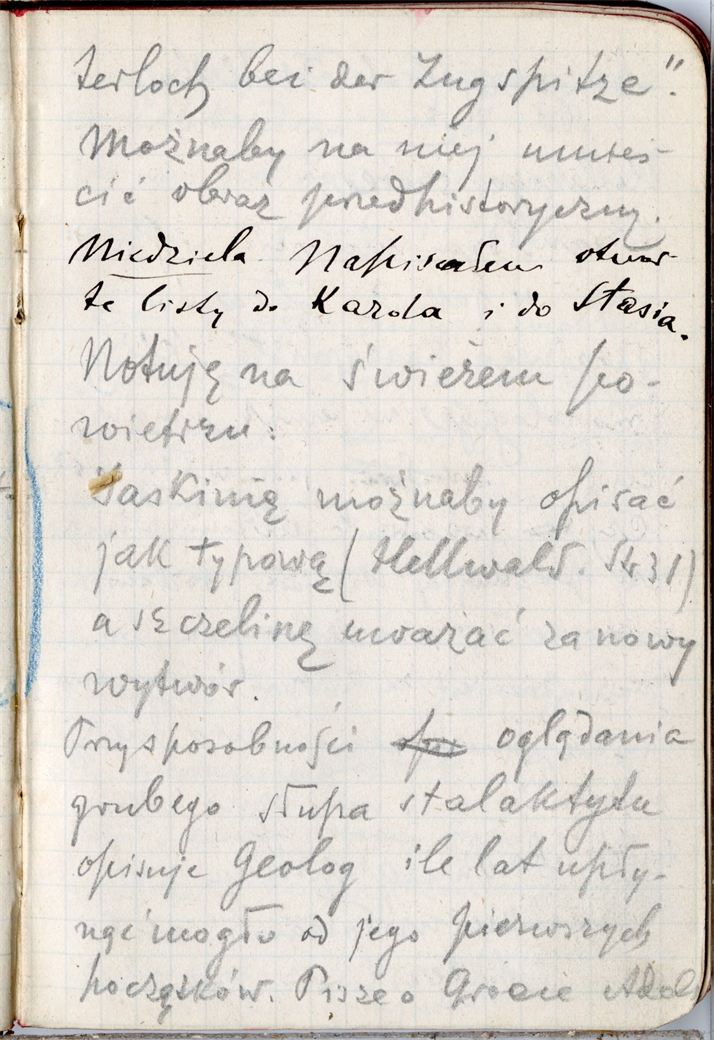 terloch bei der Zugspitze".
Możnaby na niej umieś-
cić obraz przedhistoryczny.
Niedziela. Napisałem otwar-
te listy do Karola i do Stasia.
Notuję na świeżem po-
wietrzu:
Jaskinię możnaby opisać
jak typową (Hellwald. Str 31)
a szczelinę uważać za nowy
wytwór.
Przysposobności oglądania
grubego słupa stalaktytu
opisuje Geolog ile lat upły-
nąć mogło od jego pierwszych
początków. Pisze o Grocie Adels